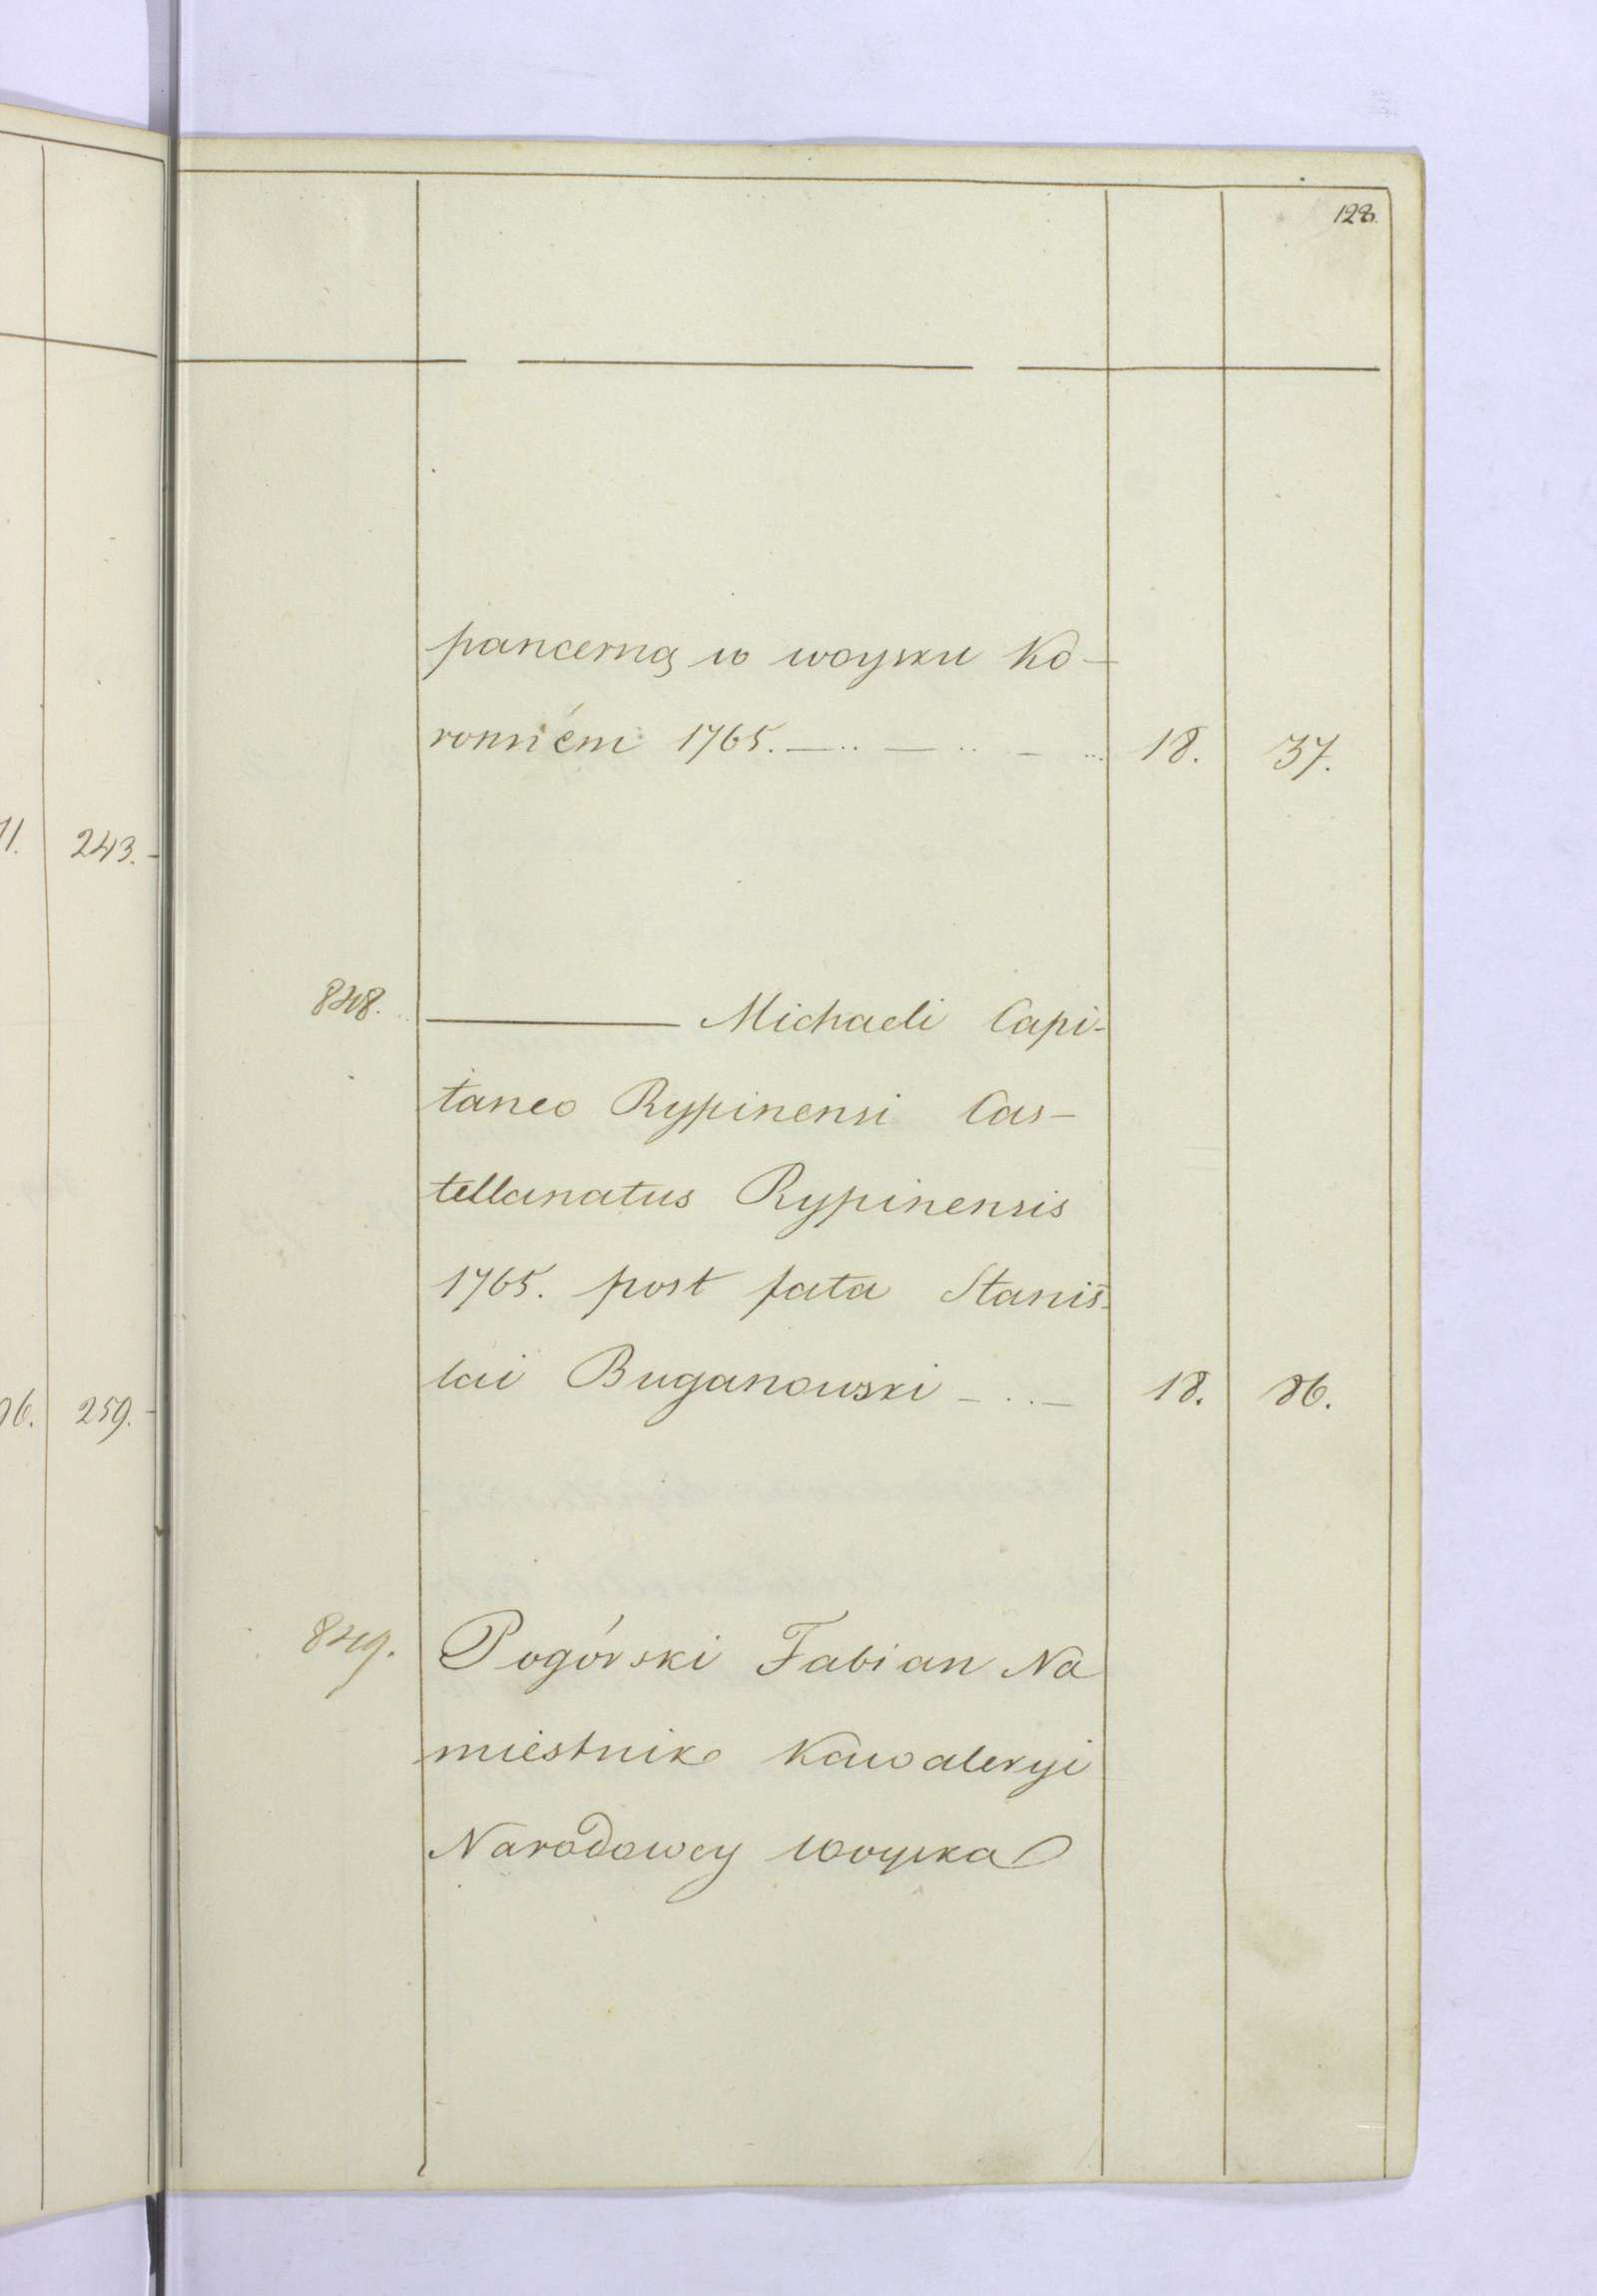 128.
pancerną w woysku Ko-
ronném 1765. — .. — .. — ... 18. 37.
11. 243.
848. ——— Michaeli Capi-
taneo Rypinensi Cas-
tellanatus Rypinensis
1765. post fata Stanis-
lai Buganowski - . . - 18. 86.
96. 259.
849. Pogórski Fabian Na
miestnik Kawaleryi
Narodowey woyska